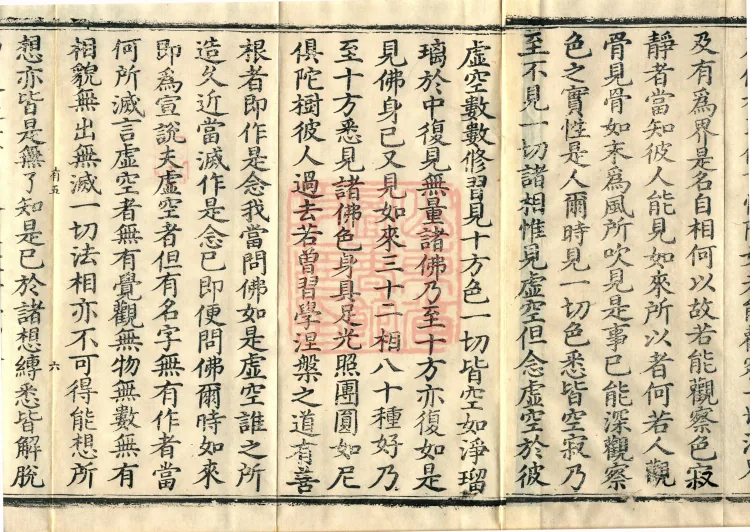 及有為界是名自相何以故若能觀察色寂
靜者當知彼人能見如來所以者何若人觀
骨見骨如末為風所吹見是事已能深觀察
色之實性是人爾時見一切色悉皆空寂乃
至不見一切諸相惟見虛空但念虛空於彼
虛空數數修習見十方色一切皆空如淨瑠
璃於中復見無量諸佛乃至十方亦復如是
見佛身已又見如來三十二相八十種好乃
至十方悉見諸佛色身具足光照團圓如尼
俱陀樹彼人過去若曾習學涅槃之道有善
根者即作是念我當問佛如是虛空誰之所
造久近當滅作是念已即便問佛爾時如來
即為宣說夫虛空者但有名字無有作者當
何所滅言虛空者無有覺觀無物無數無有
相貌無出無滅一切法相亦不可得能想所
有五
六
想亦皆是無了知是已於諸想縛悉皆解脫